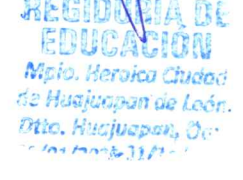 REGIDURÍA DE
EDUCACIÓN
Mpio. Heroica Ciudad
de Huajuapan de León.
Dtto. Huajuapan,